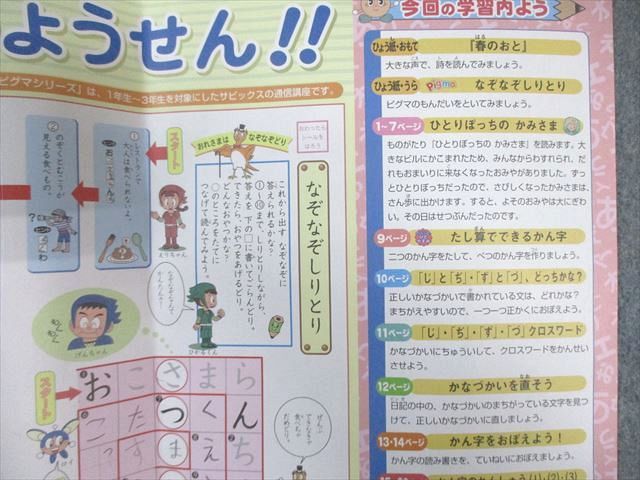 ようせん!!
ピグマシリーズ」は、1年生〜3年生を対象にしたサピックスの通信講座です。
おわったら
シールを
はろう
おれさまは なぞなぞどり
なぞなぞしりとり
これから出す なぞなぞに
答えられるかな?
①〜⑩まで、しりとりしながら、
答えを 下の□に書いてごらんどり。
できたら、おやつをあげるどり。
どんなおやつかな?
○のところをたてに
つなげて読んでみよう。
スタート
① レストランで
大人は食べられないよ。
えりちゃん
② のぞくとむこうが
見える食べもの。
わ
なぞなぞなんて
かんたんさ!
ひかるくん
げんちゃん
スタート
お こ さ ま ら
こ た つ く ん
す ま え ち
げんぶ
できなきゃ
食べちゃ
だめどり。
今回の学習内よう
ひょう紙・おもて 『春のおと』
はる
大きな声で、詩を読んでみましょう。
ひょう紙・うら Pigma なぞなぞしりとり
ピグマのもんだいをといてみましょう。
1〜7ページ ひとりぼっちの かみさま
ものがたり「ひとりぼっちの かみさま」を読みます。大
きなビルにかこまれたため、みんなからわすれられ、だ
れもおまいりに来なくなったおみやがありました。ずっ
とひとりぼっちだったので、さびしくなったかみさまは、
さん歩に出かけます。すると、よそのおみやは大にぎわ
い。その日はせつぶんだったのです。
9ページ たし算でできるかん字
二つのかん字をたして、べつのかん字を作りましょう。
10ページ 「じ」と「ぢ」・「ず」と「づ」、どっちかな?
正しいかなづかいで書かれている文は、どれかな?
まちがえやすいので、一つ一つ正かくにおぼえよう。
11ページ 「じ」・「ぢ」・「ず」・「づ」クロスワード
かなづかいにちゅういして、クロスワードをかんせい
させよう。
12ページ かなづかいを直そう
なお
日記の中の、かなづかいのまちがっている文字を見つ
けて、正しいかなづかいに直しましょう。
13・14ページ かん字をおぼえよう!
かん字の読み書きを、ていねいにおぼえましょう。
かん字のれんしゅう(1)・(2)・(3)